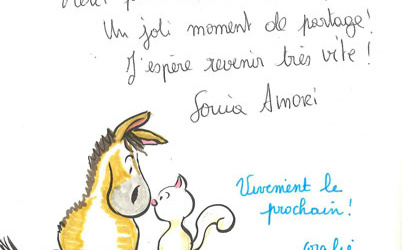 Un joli moment de partage !
J'espère revenir très vite !
Sonia Amori
Vivement le
prochain !